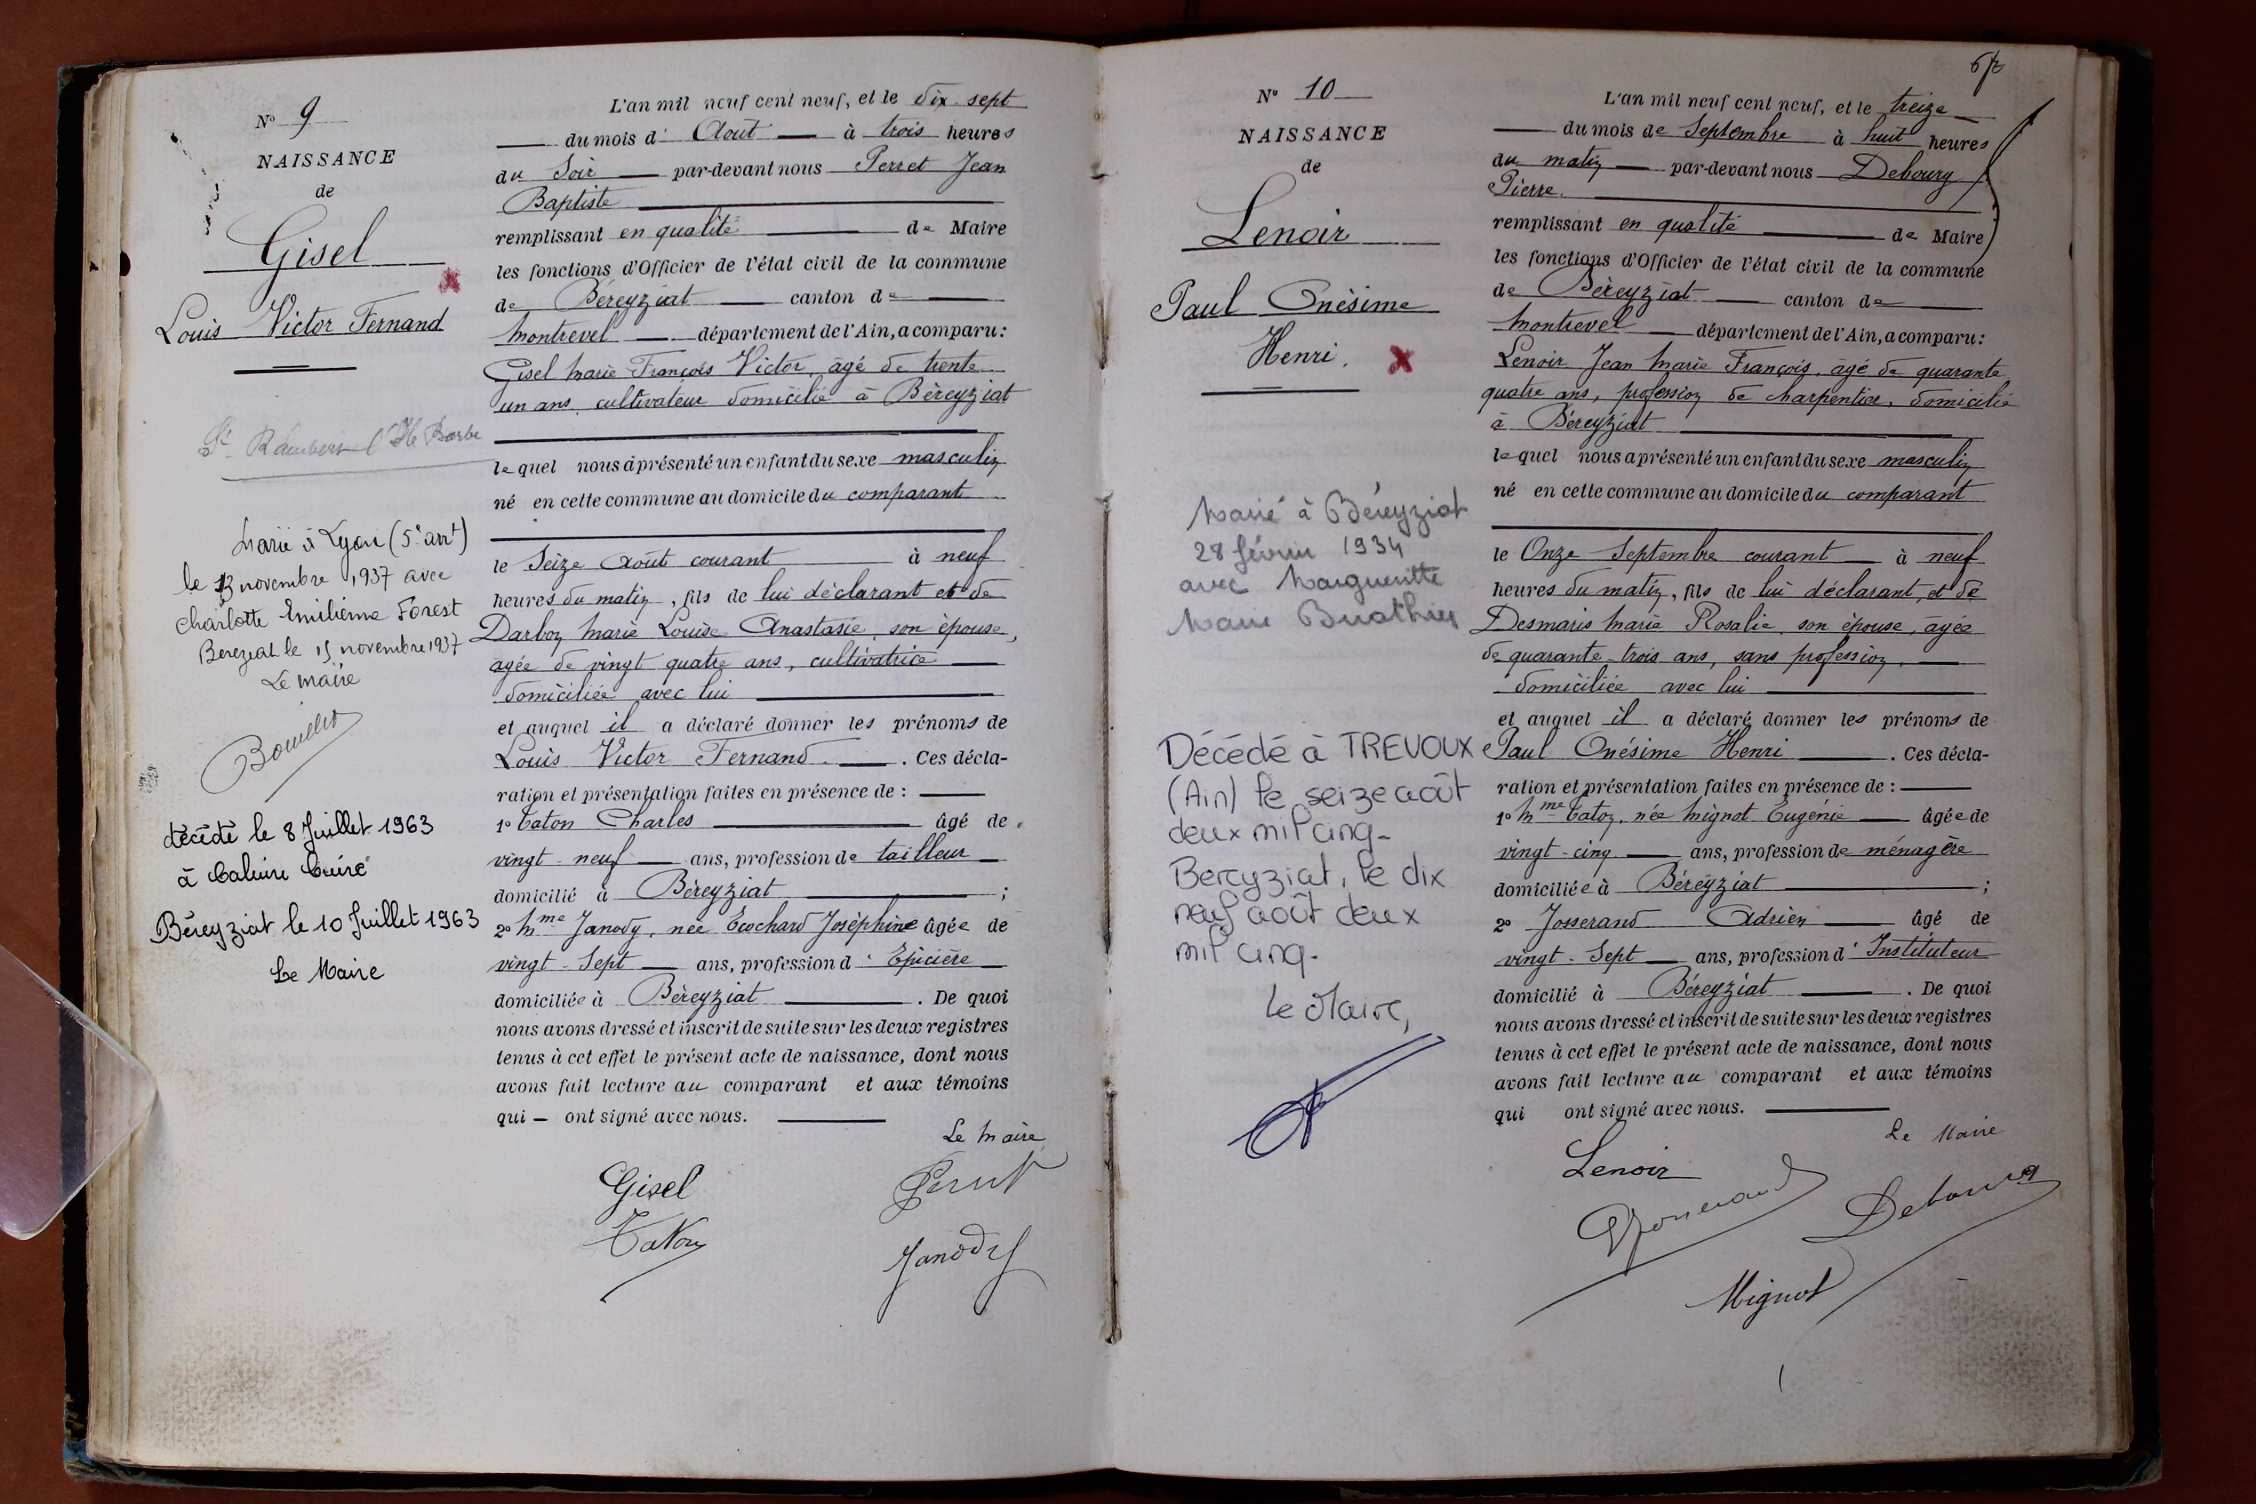 N° 9
NAISSANCE
de
Gisel
Louis Victor Fernand
St Rambert l'Ile Barbe
Marié à Lyon (5e arrt)
le 13 novembre 1937 avec
Charlotte Emilienne Forest
Bereziat le 15 novembre 1937
Le maire
décédé le 8 Juillet 1963
à Caluire Cuire
Béreyziat le 10 Juillet 1963
Le Maire
L'an mil neuf cent neuf, et le dix-sept
du mois d' Août à trois heures
du Soir par-devant nous Perret Jean
Baptiste
remplissant en qualité de Maire
les fonctions d'Officier de l'état civil de la commune
de Béreyziat canton de
Montrevel département de l'Ain, a comparu:
Gisel Marie François Victor, âgé de trente
un ans, cultivateur domicilié à Béreyziat
lequel nous a présenté un enfant du sexe masculin
né en cette commune au domicile du comparant
le Seize Août courant à neuf
heures du matin, fils de lui déclarant et de
Darbon Marie Louise Anastasie, son épouse,
agée de vingt quatre ans, cultivatrice
domiciliée avec lui
et auquel il a déclaré donner les prénoms de
Louis Victor Fernand. Ces décla-
ration et présentation faites en présence de :
1° Caton Charles âgé de
vingt-neuf ans, profession de tailleur
domicilié à Béreyziat ;
2° Mme Janody, née Ecochard Joséphine âgée de
vingt-Sept ans, profession d' Epicière
domiciliée à Béreyziat . De quoi
nous avons dressé et inscrit de suite sur les deux registres
tenus à cet effet le présent acte de naissance, dont nous
avons fait lecture au comparant et aux témoins
qui – ont signé avec nous.
Le Maire
Gisel
Perret
Caton
Janody
67
N° 10
NAISSANCE
de
Lenoir
Paul Onésime
Henri.
Marié à Béreyziat
28 février 1934
avec Margueritte
Marie Buathier
Décédé à TREVOUX
(Ain) le seize août
deux mil cinq-
Bereyziat, le dix
neuf août deux
mil cinq.
Le Maire,
L'an mil neuf cent neuf, et le treize
du mois de Septembre à huit heures
du matin par-devant nous Debourg
Pierre.
remplissant en qualité de Maire
les fonctions d'Officier de l'état civil de la commune
de Béreyziat canton de
Montrevel département de l'Ain, a comparu:
Lenoir Jean Marie François, âgé de quarante
quatre ans, profession de charpentier, domicilié
à Béreyziat
lequel nous a présenté un enfant du sexe masculin
né en cette commune au domicile du comparant
le Onze Septembre courant à neuf
heures du matin, fils de lui déclarant, et de
Desmaris Marie Rosalie, son épouse, âgée
de quarante-trois ans, sans profession,
domiciliée avec lui
et auquel il a déclaré donner les prénoms de
Paul Onésime Henri . Ces décla-
ration et présentation faites en présence de :
1° Mme Caton, née Mignot Eugénie âgée de
vingt-cinq ans, profession de ménagère
domiciliée à Béreyziat ;
2° Josserand Adrien âgé de
vingt-Sept ans, profession d' Instituteur
domicilié à Béreyziat . De quoi
nous avons dressé et inscrit de suite sur les deux registres
tenus à cet effet le présent acte de naissance, dont nous
avons fait lecture au comparant et aux témoins
qui ont signé avec nous.
Le Maire
Lenoir
Josserand
Debourg
Mignot